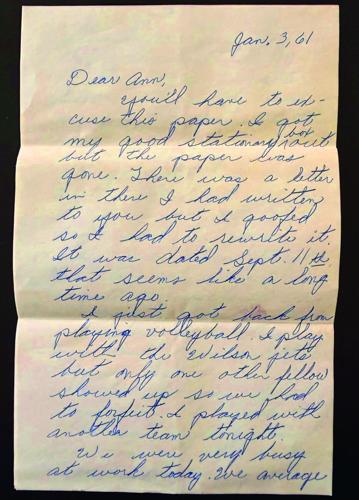 Jan. 3, 61
Dear Ann,
You'll have to ex-
cuse this paper. I got
my good stationary box out
but the paper was
gone. There was a letter
in there I had written
to you but I goofed
so I had to rewrite it.
It was dated Sept. 11th,
that seems like a long
time ago.
I just got back from
playing volleyball. I play
with the Wilson Jets
but only one other fellow
showed up so we had
to forfeit. I played with
another team tonight.
We were very busy
at work today. We average